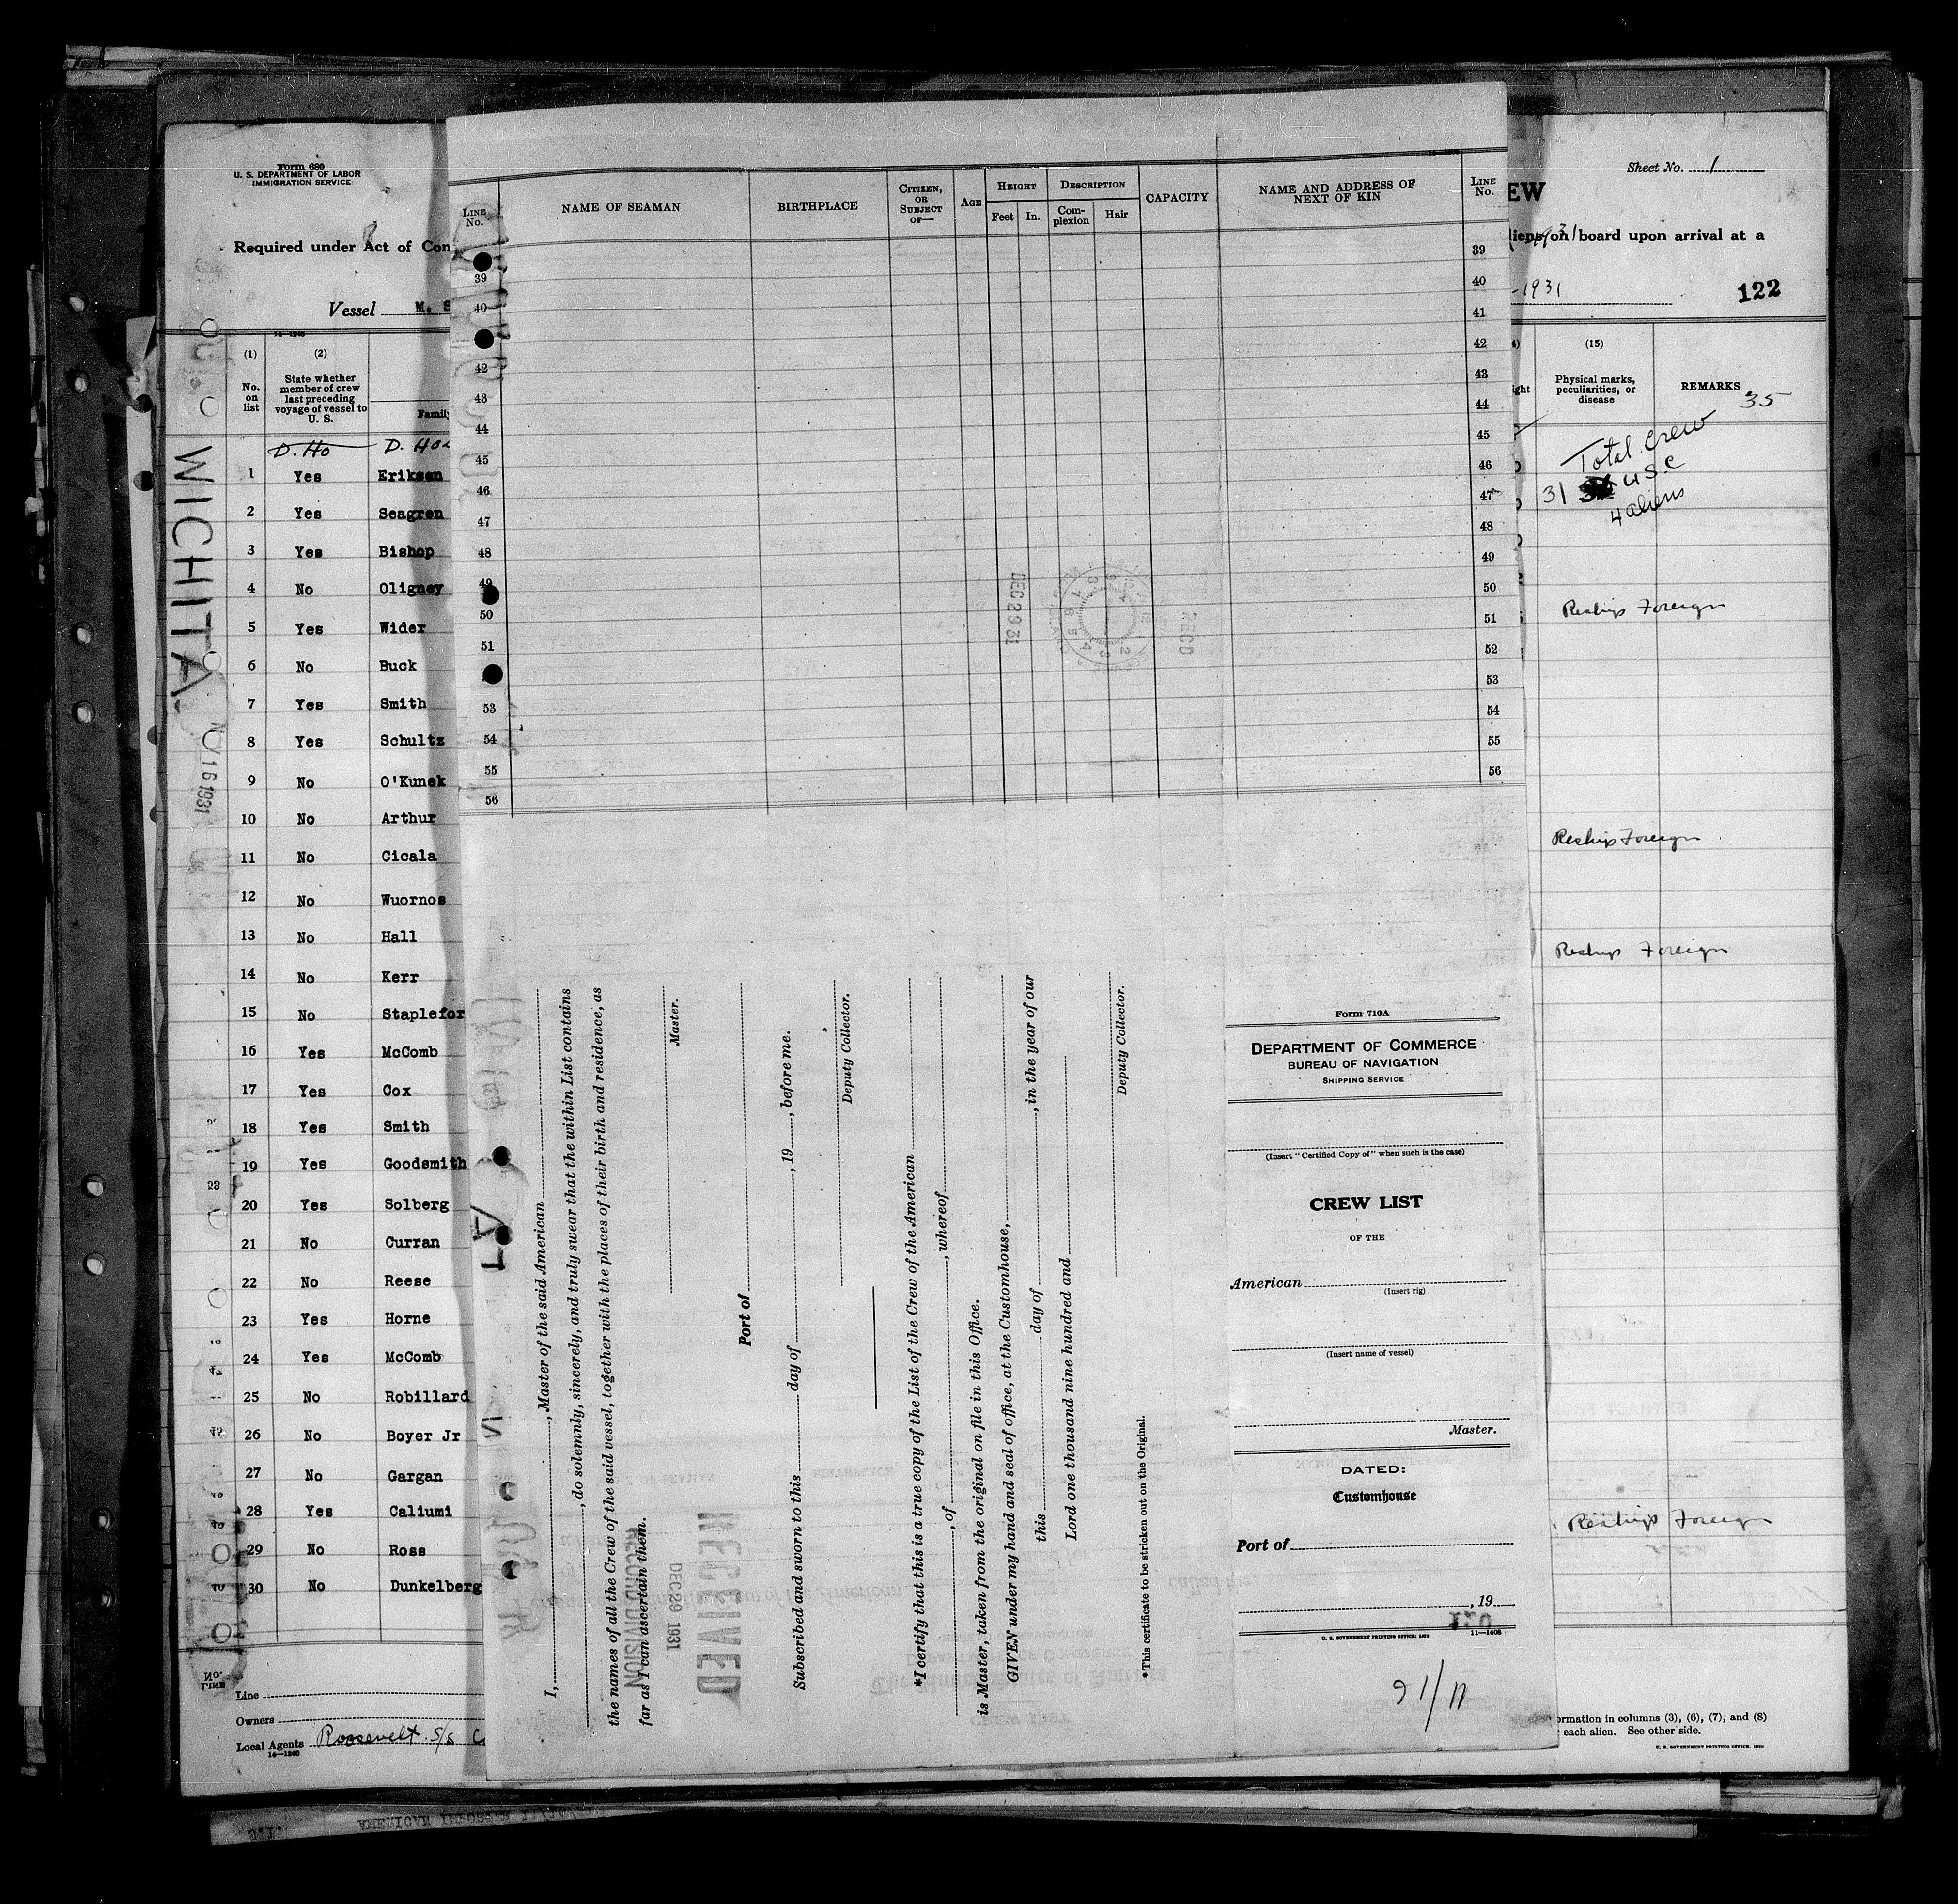 Form 680
U. S. DEPARTMENT OF LABOR
IMMIGRATION SERVICE
Required under Act of Con
Vessel M. S
14—1240
(1)
No.
on
list
(2)
State whether
member of crew
last preceding
voyage of vessel to
U. S.
Family
D. Ho D. Ho
1 Yes Eriksen
2 Yes Seagren
3 Yes Bishop
4 No Oligney
5 Yes Wider
6 No Buck
7 Yes Smith
8 Yes Schultz
9 No O'Kunek
10 No Arthur
11 No Cicala
12 No Wuornos
13 No Hall
14 No Kerr
15 No Staplefor
16 Yes McComb
17 Yes Cox
18 Yes Smith
19 Yes Goodsmith
20 Yes Solberg
21 No Curran
22 No Reese
23 Yes Horne
24 Yes McComb
25 No Robillard
26 No Boyer Jr
27 No Gargan
28 Yes Caliumi
29 No Ross
30 No Dunkelberg
Line
Owners
Local Agents Roosevelt S/S C
14—1240
WICHITA
NOV 16 1931
LINE
No.
NAME OF SEAMAN
BIRTHPLACE
CITIZEN,
OR
SUBJECT
OF—
AGE
HEIGHT
Feet In.
DESCRIPTION
Com-
plexion
Hair
CAPACITY
NAME AND ADDRESS OF
NEXT OF KIN
LINE
No.
39 39
40 40
41
42 42
43 43
44 44
45 45
46 46
47 47
48 48
49 49
50 50
51 51
52
53 53
54 54
55 55
56 56
DEC 29 31
REC'D
I, , Master of the said American
, do solemnly, sincerely, and truly swear that the within List contains
the names of all the Crew of the said vessel, together with the places of their birth and residence, as
far as I can ascertain them.
Master.
RECORD DIVISION
DEC 29 1931
RECEIVED
Port of
Subscribed and sworn to this day of , 19 , before me.
Deputy Collector.
*I certify that this is a true copy of the List of the Crew of the American
, of , whereof
is Master, taken from the original on file in this Office.
GIVEN under my hand and seal of office, at the Customhouse,
this day of , in the year of our
Lord one thousand nine hundred and
Deputy Collector.
*This certificate to be stricken out on the Original.
Form 710A
DEPARTMENT OF COMMERCE
BUREAU OF NAVIGATION
SHIPPING SERVICE
(Insert "Certified Copy of" when such is the case)
CREW LIST
OF THE
American
(Insert rig)
(Insert name of vessel)
Master.
DATED:
Customhouse
Port of
, 19
U. S. GOVERNMENT PRINTING OFFICE: 11—1408
EW
Sheet No. 1
liens on board upon arrival at a
-1931
122
(15)
Physical marks,
peculiarities, or
disease
REMARKS
35
Total Crew
31 USC
4 aliens
Reships Foreign
Reships Foreign
Reships Foreign
Reships Foreign
ormation in columns (3), (6), (7), and (8)
each alien. See other side.
U. S. GOVERNMENT PRINTING OFFICE: 1929